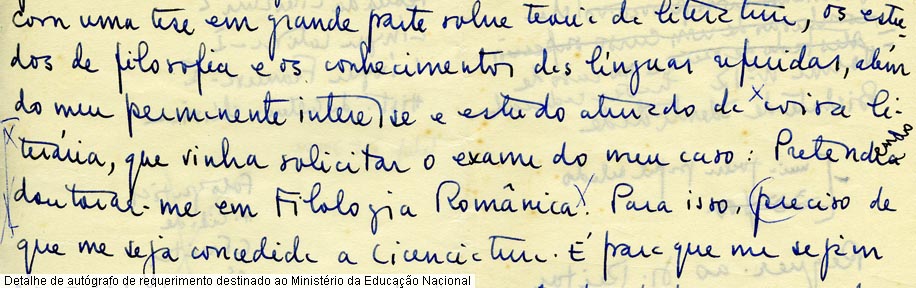 com uma tese em grande parte sobre teoria da literatura, os estu-
dos de filosofia e os conhecimentos das línguas referidas, além
do meu permanente interesse e estudo aturado da coisa li-
terária, que vinha solicitar o exame do meu caso: Pretendendo
doutorar-me em Filologia Românica. Para isso, preciso de
que me seja concedida a licenciatura. E para que me sejam
Detalhe de autógrafo de requerimento destinado ao Ministério da Educação Nacional